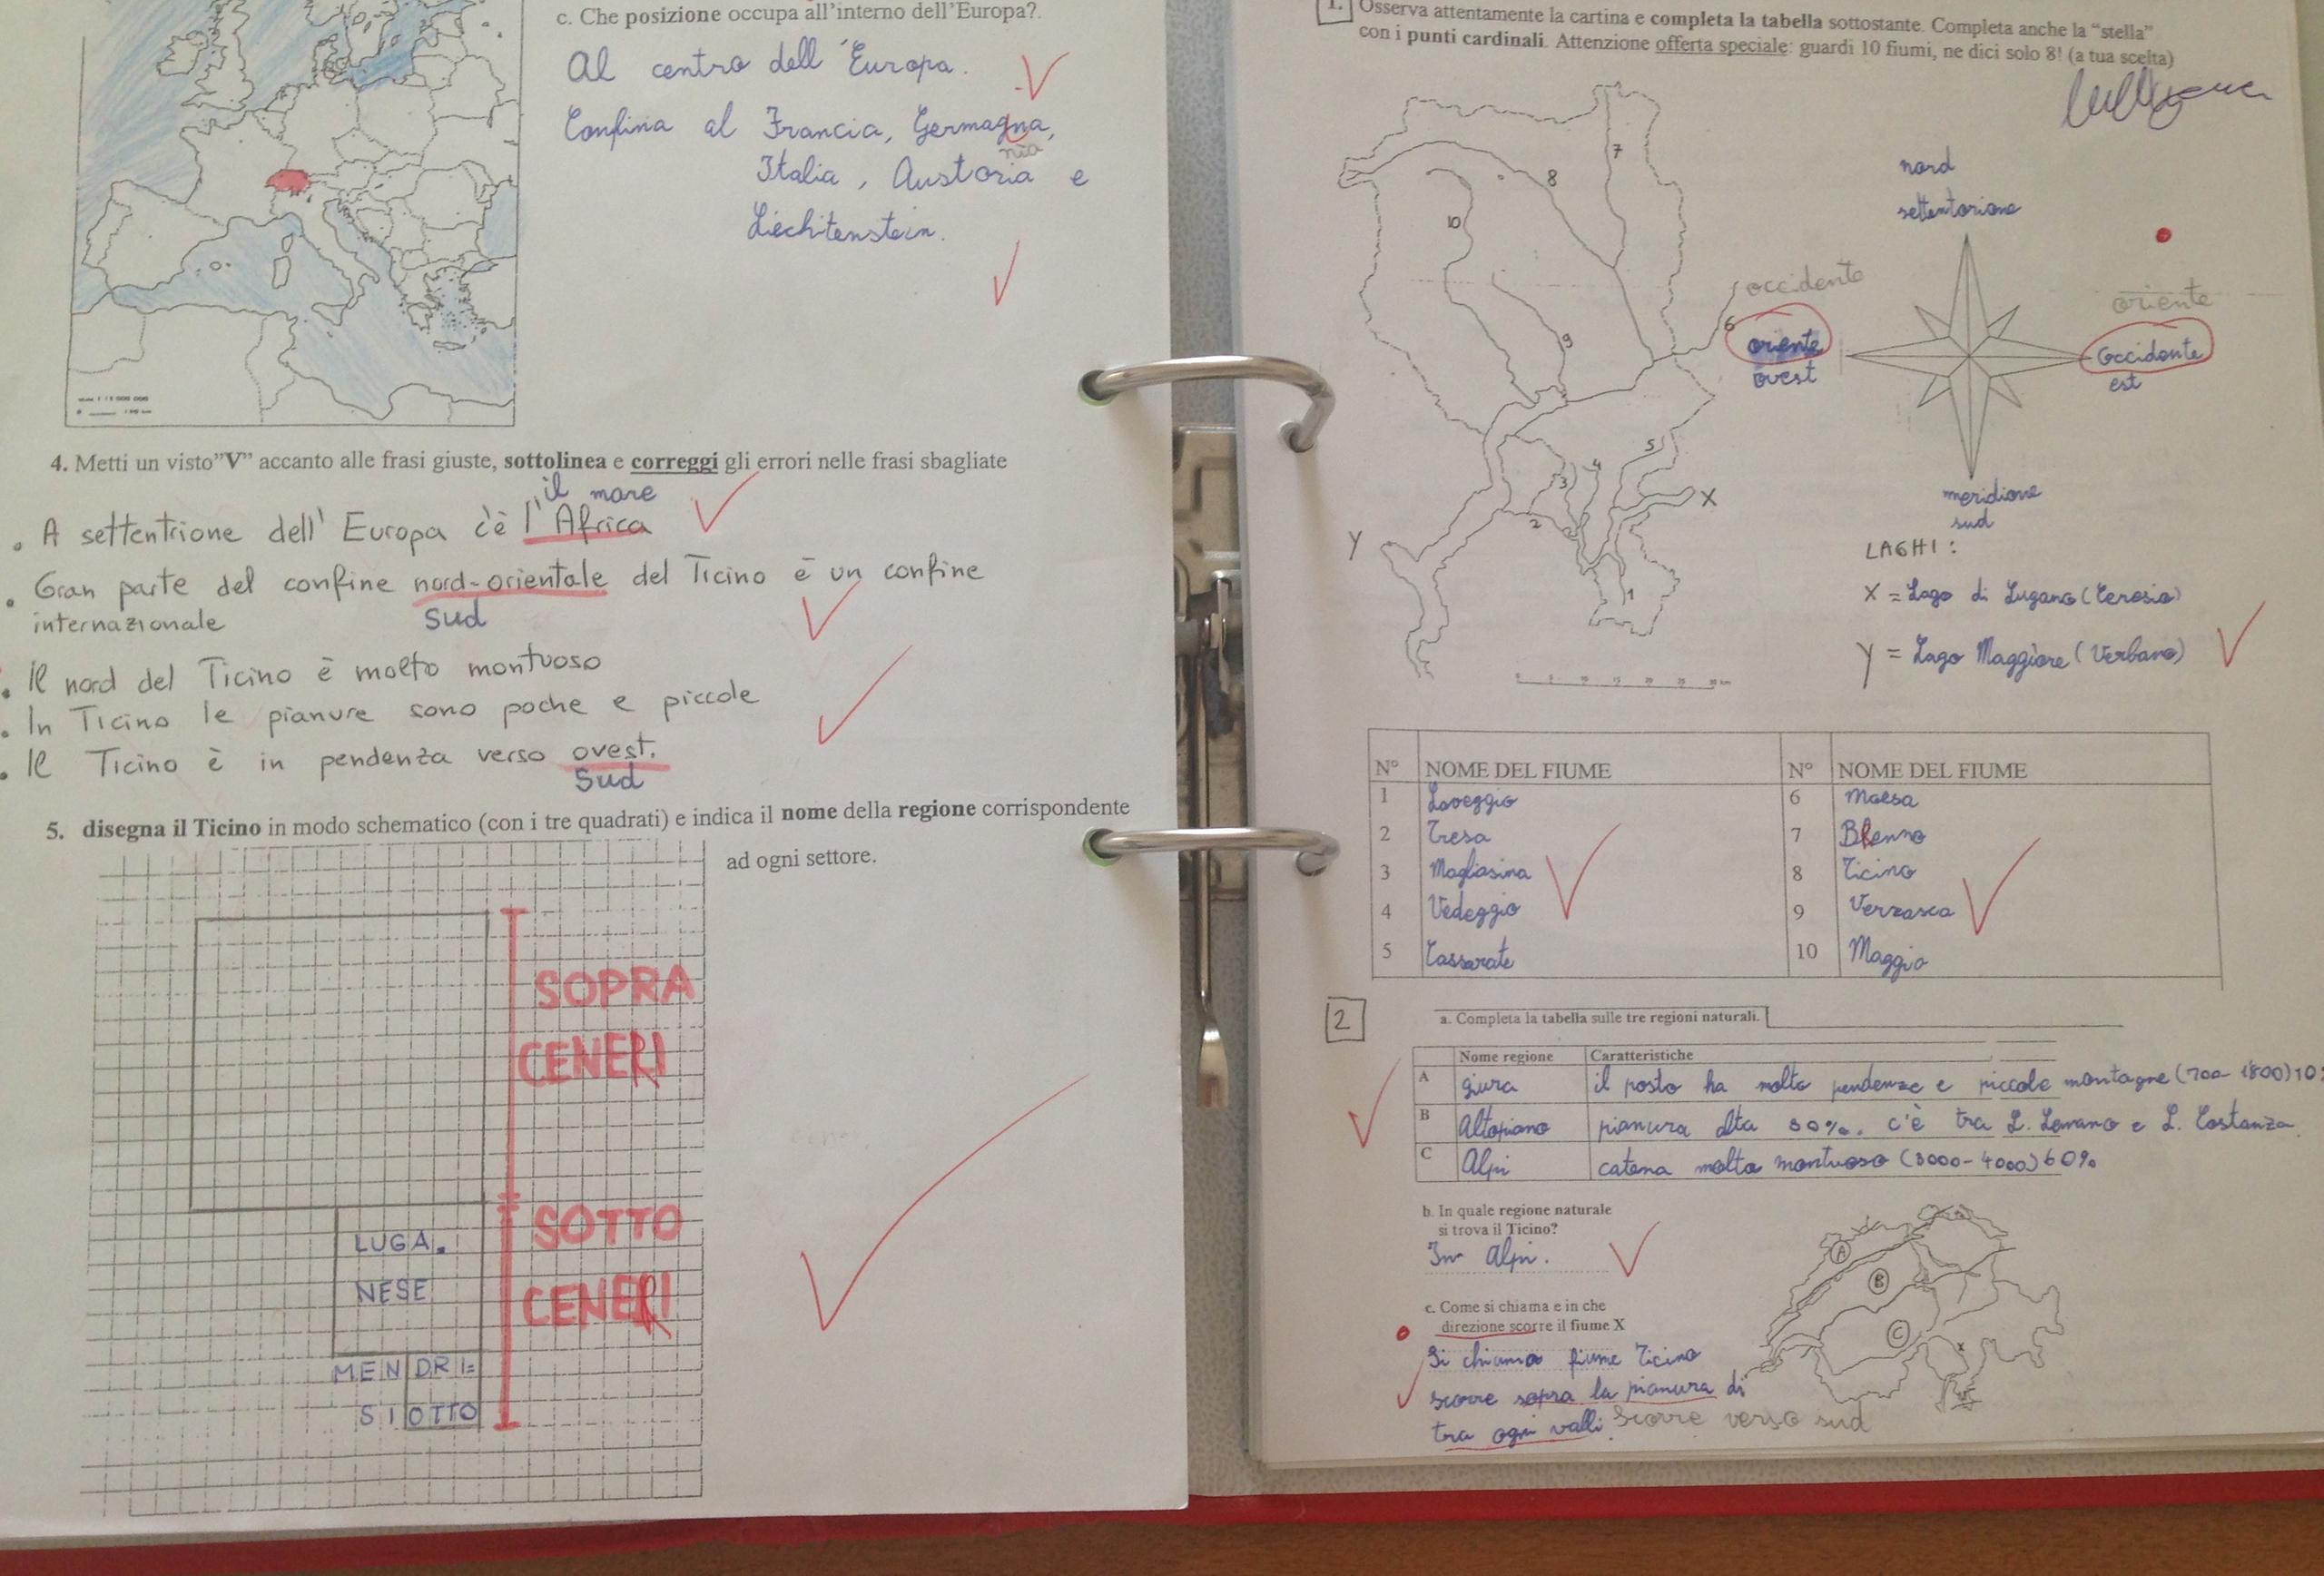 c. Che posizione occupa all'interno dell'Europa?.
Al centro dell'Europa.
Confina al Francia, Germagna,
nia
Italia, Austoria e
Liechitenstein.
4. Metti un visto"V" accanto alle frasi giuste, sottolinea e correggi gli errori nelle frasi sbagliate
il mare
• A settentrione dell'Europa c'è l'Africa
• Gran parte del confine nord-orientale del Ticino è un confine
internazionale
sud
• Il nord del Ticino è molto montuoso
• In Ticino le pianure sono poche e piccole
• Il Ticino è in pendenza verso ovest.
Sud
5. disegna il Ticino in modo schematico (con i tre quadrati) e indica il nome della regione corrispondente
ad ogni settore.
SOPRA
CENERI
SOTTO
CENERI
LUGA.
NESE
MENDRI=
SIOTTO
1. Osserva attentamente la cartina e completa la tabella sottostante. Completa anche la "stella"
con i punti cardinali. Attenzione offerta speciale: guardi 10 fiumi, ne dici solo 8! (a tua scelta)
nord
settentorione
occidente
oriente
ovest
oriente
occidente
est
meridione
sud
7
8
10
6
9
5
4
3
2
1
X
Y
LAGHI:
X = Lago di Lugano (Ceresio)
Y = Lago Maggiore (Verbano)
0 5 10 15 20 25 30 km
N° NOME DEL FIUME N° NOME DEL FIUME
1 Laveggio 6 Moesa
2 Tresa 7 Blenno
3 Magliasina 8 Ticino
4 Vedeggio 9 Verzasca
5 Cassarate 10 Maggio
2
a. Completa la tabella sulle tre regioni naturali.
Nome regione Caratteristiche
A giura il posto ha molte pendenze e piccole montagne (700-1800) 10
B Altopiano pianura alta 30%. c'è tra L. Lemano e L. Costanza
C Alpi catena molto montuoso (3000-4000) 60%
b. In quale regione naturale
si trova il Ticino?
In Alpi.
c. Come si chiama e in che
direzione scorre il fiume X
Si chiama fiume Ticino
scorre sopra la pianura di
tra ogni valli. Scorre verso sud
A
B
C
x